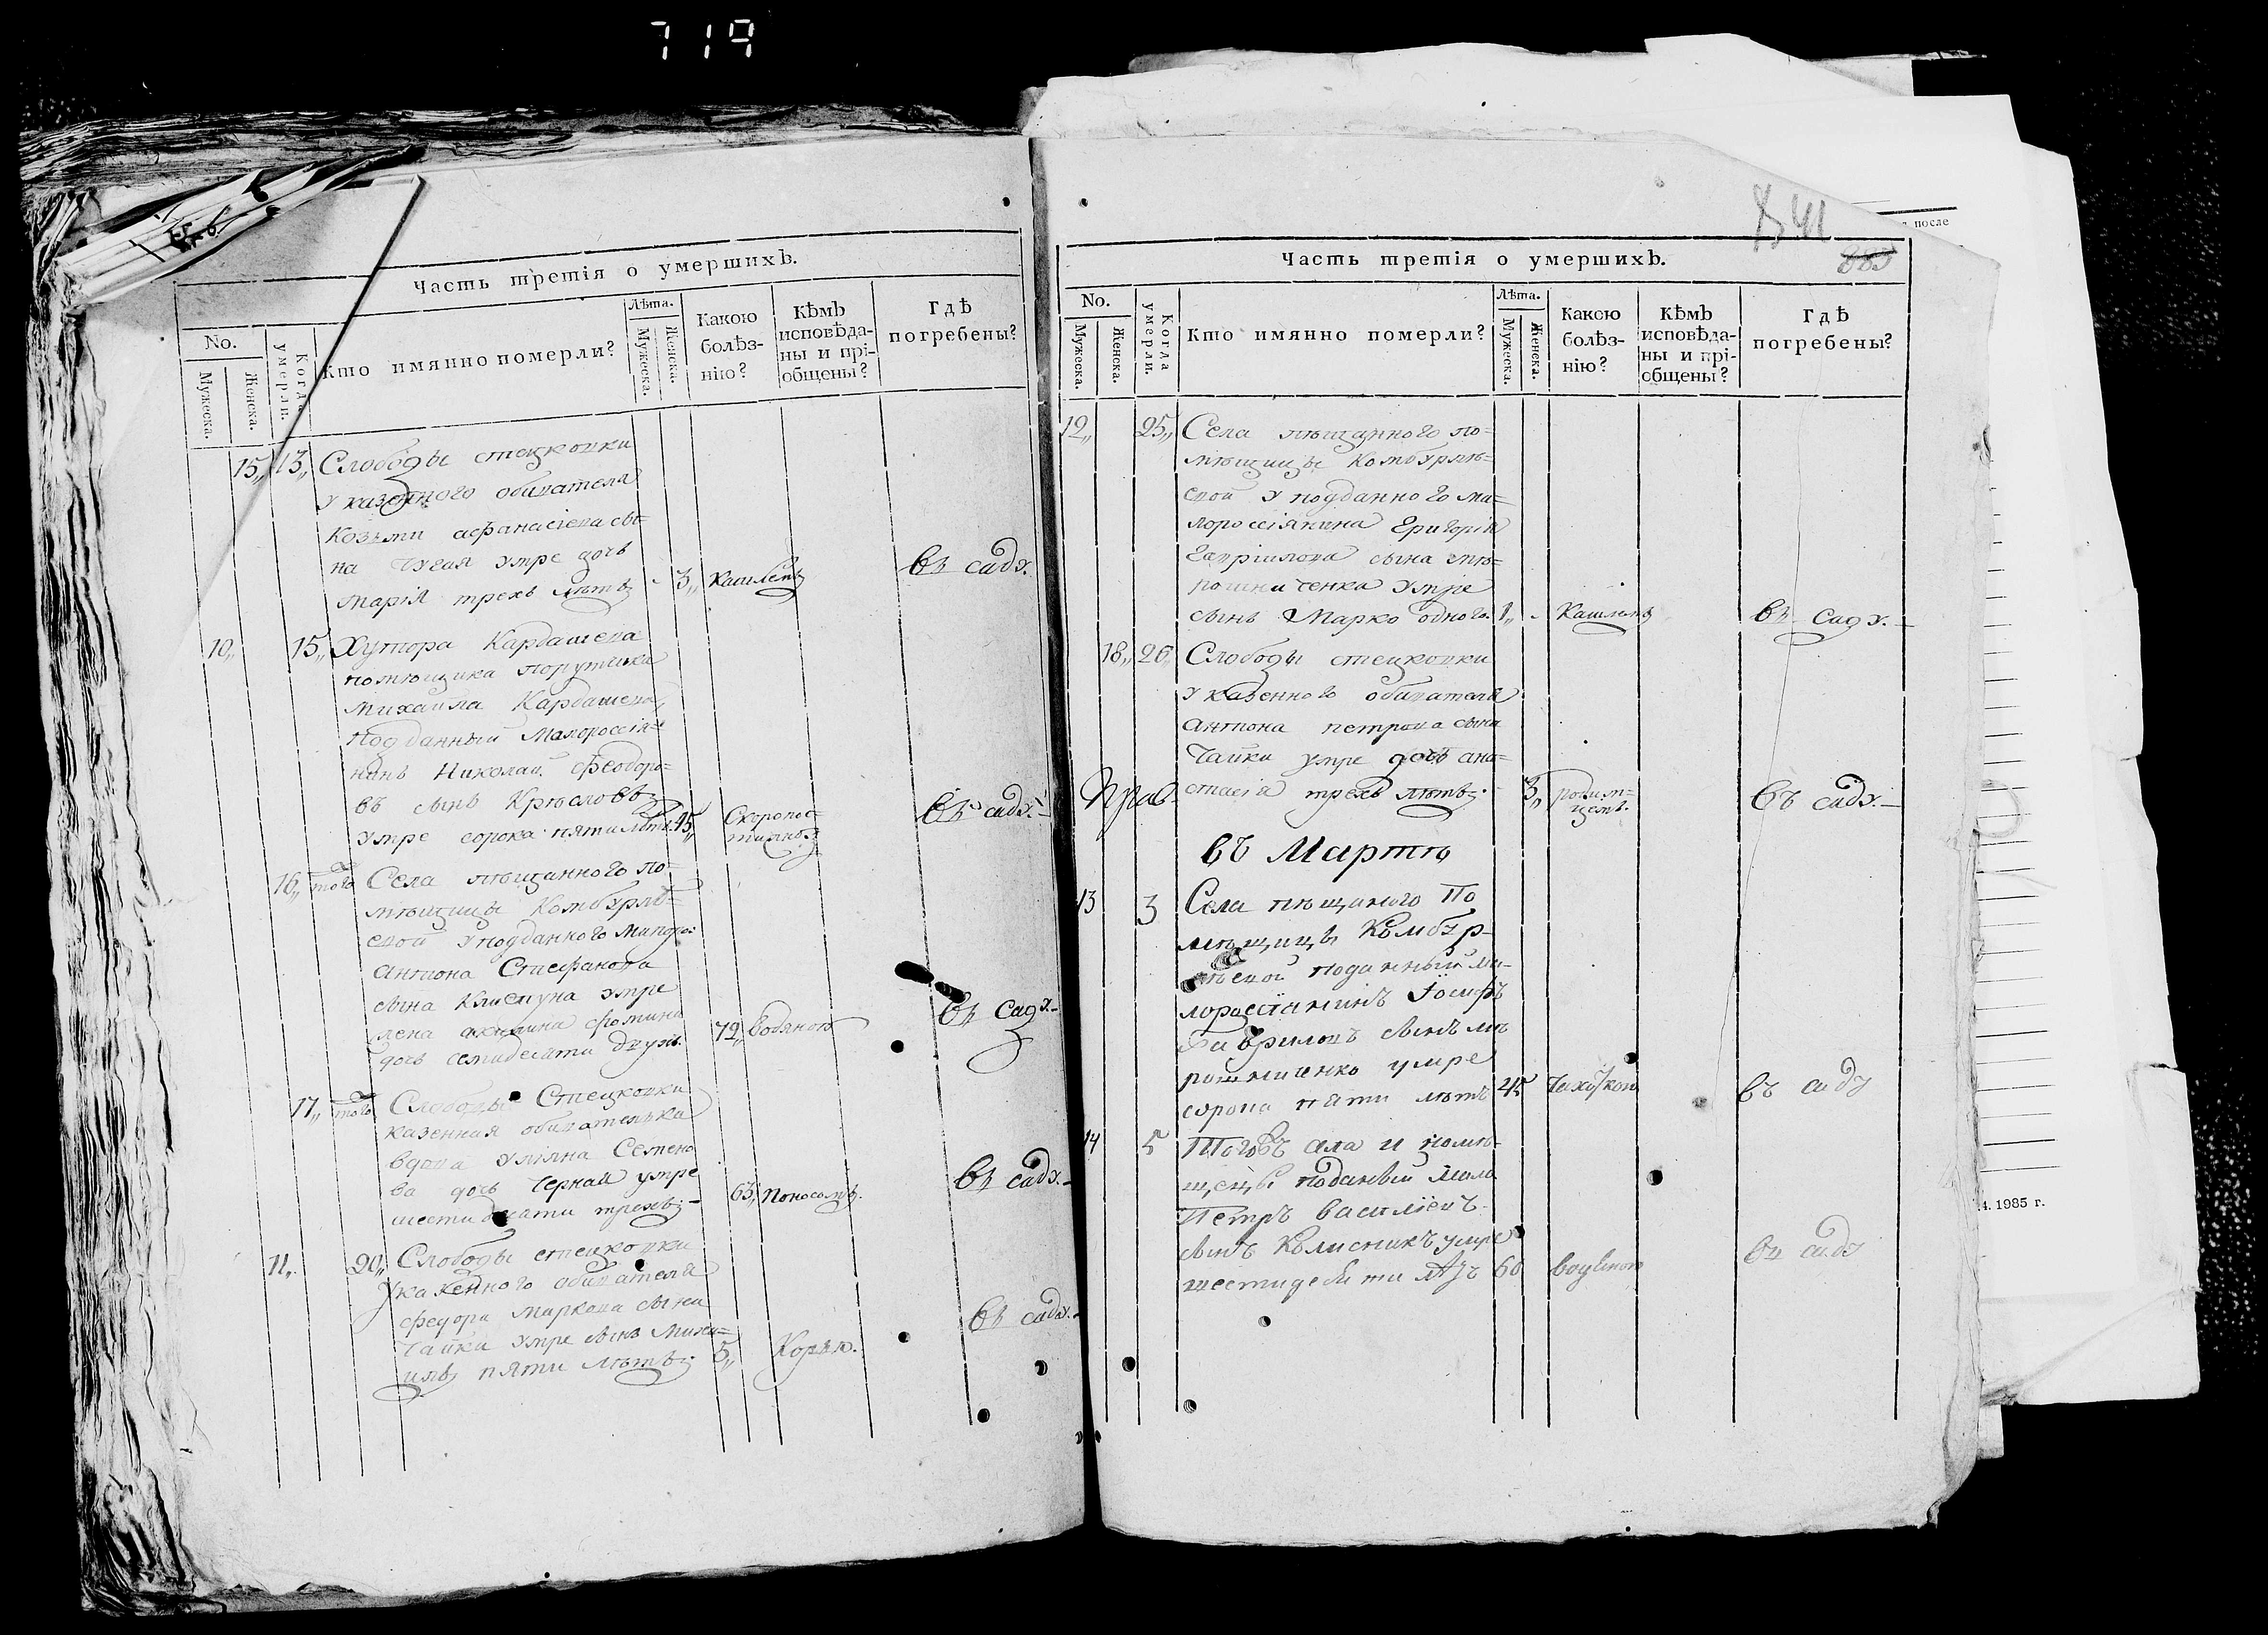 719
Часть третія о умершихъ.
No.
Мужеска.
Женска.
Когда умерли.
Кто имянно померли?
Лѣта.
Мужеска.
Женска.
Какою болѣз-
нію?
Кѣмъ
исповѣда-
ны и прі-
общены?
Гдѣ
погребены?
15,, 13,, Слободы стецковки
у казенного обивателя
Козьми афанасіева сы-
на Чугая умре дочь
марія трехъ лѣтъ 3,, кашлемъ въ саду.
10,, 15,, Хутора Кардашева
помѣщика порутчика
михаила Кардашева
подданный Малороссія-
нинъ Николай Феодоро-
въ сынъ
умре сорока пяти лѣтъ 45,, Скоропос-
тижно въ саду.
16,, того Села пѣщанного по-
мѣщицы Комбурлѣ-
евой у подданного малорос:
антона Стефанова
сына умре
жена акилина фомина
дочь семидесяти двухъ 72,, водяною въ саду.
17,, того Слободы Стецковки
казенная обивателька
вдова уліяна Семено
ва дочь черная умре
шестидесяти трехъ 63,, поносомъ. въ саду.
11,, 20,, Слободы стецковки
у казенного обивателя
феодора маркова сына
Чайки умре сынъ миха-
илъ пяти лѣтъ 5,, Корью. въ саду.
841
после
Часть третія о умершихъ.
883
No.
Мужеска.
Женска.
Когда умерли.
Кто имянно померли?
Лѣта.
Мужеска.
Женска.
Какою
болѣз-
нію?
Кѣмъ
исповѣда-
ны и прі-
общены?
Гдѣ
погребены?
12,, 25,, Села пѣщанного по-
мѣщицы Комбурлѣ-
евой у подданного ма-
лороссіянина Григорія
Гавріилова сына мѣ-
рошниченка умре
сынъ Марко одного. 1,, Кашлемъ въ саду.
18,, 26,, Слободы стецковки
у казенного обивателя
антона петрова сына
Чайки умре дочь ана-
стасія трехъ лѣтъ 3,, родим-
цемъ. въ саду.
въ Мартѣ
13 3 Села пѣщаного По
мѣщицы Комбур-
лѣевой поданный ма-
лороссіянинъ Іосифъ
Гавриловъ сынъ мѣ
рошниченко умре
сорока пяти лѣтъ 45 Чахоткою въ саду
14 5 Тогожъ села и помѣ-
щецы поданый мало
Петръ василіевъ
сынъ Колисникъ умре
шестидесяти лѣтъ 60 водяною въ саду
4. 1985 г.